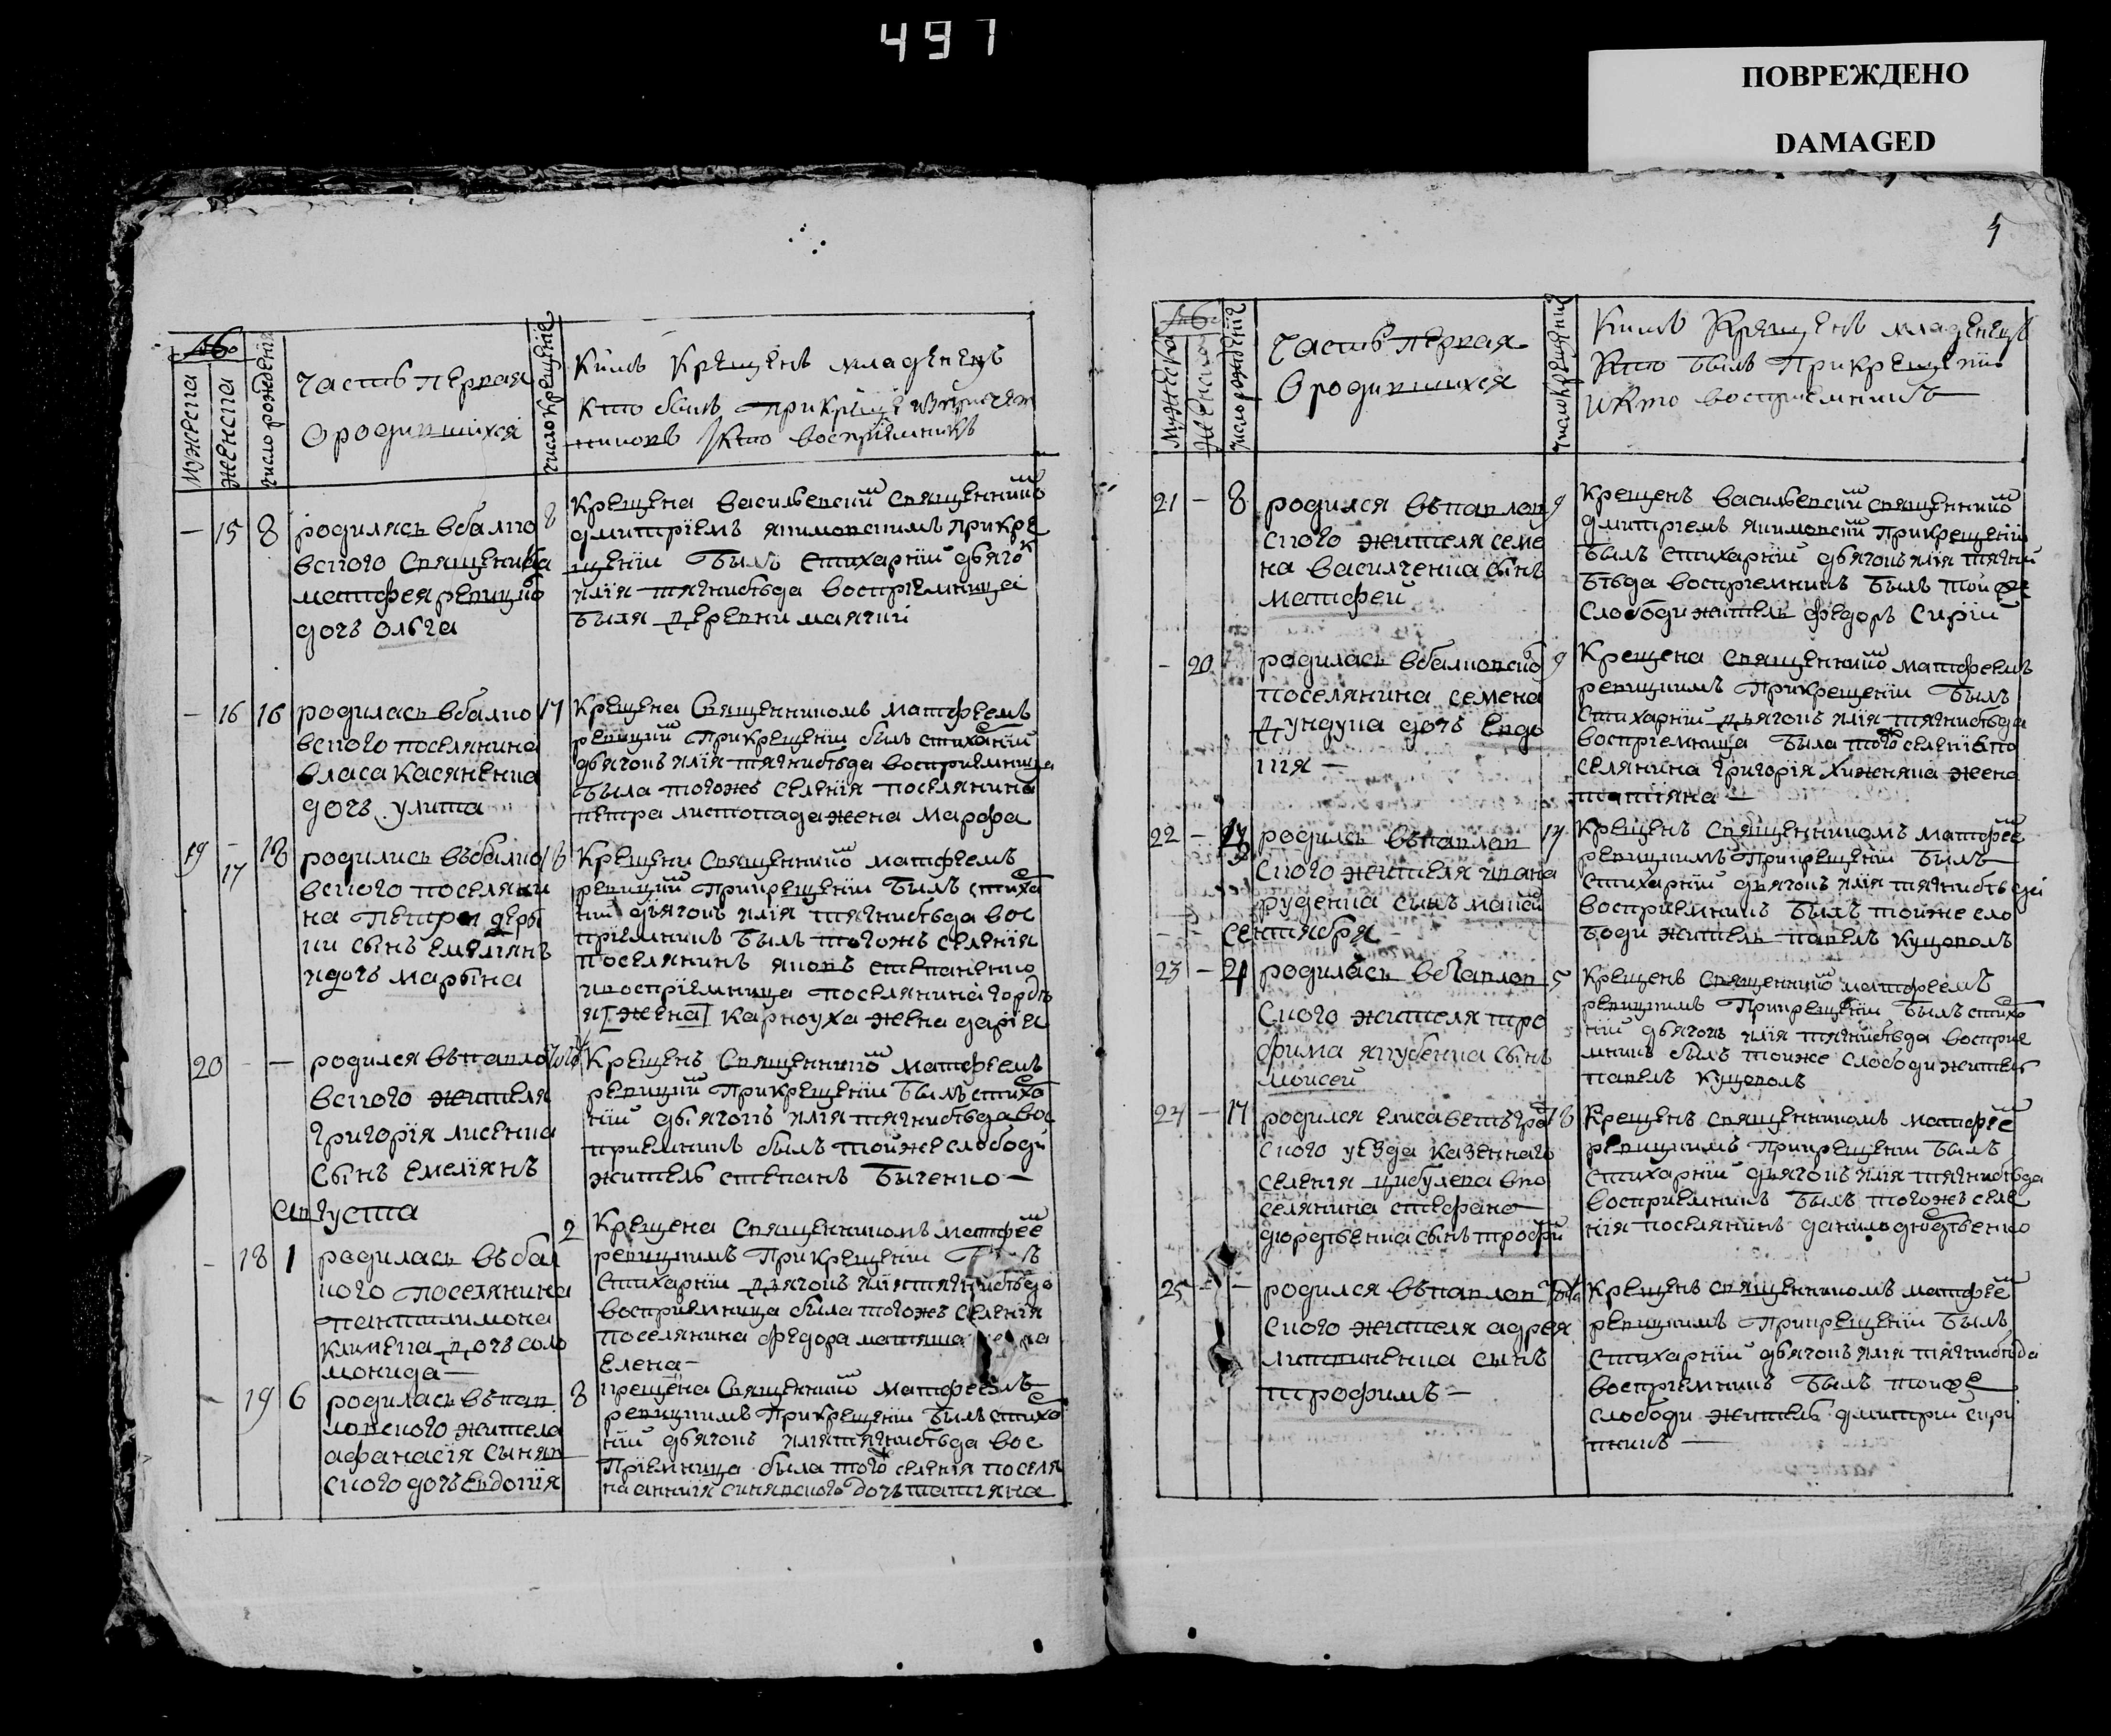 497
ПОВРЕЖДЕНО
DAMAGED
№
Мужеска
женска
число рождения
Часть первая
О родившихся
число крещения
Кимъ Крещенъ младенецъ
Кто былъ при креще
Кто воспрїемникъ
— 15 8 родилась в балко 8
вского священника
матфея ревицко
дочь Ольга
Крещена васильевским священнико
дмитрїемъ якимовскимъ при кре
щенїи былъ стихарнїй дьячо
илїя тягнибѣда воспрїемницеі
была деревни маячкї
— 16 16 родилась в балко 17
вского поселянина
власа касяненка
дочь улита
Крещена Священникомъ матфеемъ
ревицким при крещенїи былъ стихарнїй
дьячокъ илїя тягнибѣда восприемница
была тогожъ селенїя поселянина
петра листопада жена марфа
19 — 17 18 родились въ балко 18
вского поселяни
на петра
сынъ емелїянъ
и дочь марына
Крещени Священнико матфеемъ
ревицким при крещенїи былъ стиха
нїй дьячокъ илїя тягнибѣда вос
прїемникъ былъ тогожъ селенїя
поселянинъ яковъ степаненко
и воспрїемница поселянина горд
[жена] карноуха жена дарїя
20 — — родился въ павло
вского жителя
григорїя лисенка
сынъ емелїянъ
Крещенъ Священнико матфеемъ
ревицким при крещенїи былъ стиха
нїй дьячокъ илїя тягнибѣда вос
приемникъ былъ тойже слободи
житель степанъ быченко —
августа
— 18 1 родилась въ бал 2
кого поселянина
пантилимона
дочь соло
монида —
Крещена Священникомъ матфее
ревицкимъ при крещенїи
стихарнїй дьячокъ илїя тягнибѣда
восприемница была тогожъ селенїя
поселянина федора
елена —
— 19 6 родилась въ пав 8
ловского жителя
афанасїя сыняв
ского дочь Евдокїя
крещена Священнико матфеемъ
ревицкимъ при крещенїи былъ стиха
нїй дьячокъ илїя тягнибѣда вос
прїемница была того селенїя поселя
синявского дочь татїяна
№
Мужеска
женска
число рожденїя
Часть первая
О родившихся
число крещенїя
Кимъ Крещенъ младенецъ
Кто былъ При крещенїи
и Кто восприемникъ
21 — 8 родился въ павлов 9
ского жителя семе
на василченка сынъ
матфей
Крещенъ васильевским священнико
дмитрїемъ якимовским при крещенїи
былъ стихарнїй дьячокъ илїя тягни
бѣда восприемникъ былъ тойже
слободи житель федоръ сирїй
— 20 родилась в балковско 9
поселянина семена
дундука дочь Евдо
кїя —
Крещена священнико матфеемъ
ревицкимъ при крещенїи былъ
стихарнїй дьячокъ илїя тягнибѣда
восприемница была того селенїя по
селянина григорїя хиженяка жена
татїяна —
22 — родилъ въ павлов
ского жителя ивана
руденка сынъ
Крещенъ священникомъ матфее
ревицкимъ при крещенїи былъ
стихарнїй дьячокъ илїя тягнибѣда
восприемникъ былъ тойже сло
боди житель павелъ куцоволъ
сентября
23 — 4 родилась въ павлов 5
ского жителя тро
фима якубенка сынъ
моисей
Крещенъ священнико матфеемъ
ревицкимъ при крещенїи былъ стиха
нїй дьячокъ илїя тягнибѣда восприе
мникъ былъ тойже слободи житель
павелъ куцоволъ
24 — 17 родился елисаветъгра 18
ского уезда казеннаго
селенїя цибулева по
селянина стефана
сынъ трофи
Крещенъ священникомъ матфее
ревицкимъ при крещенїи былъ
стихарнїй дьячокъ илїя тягнибѣда
восприемникъ былъ тогожъ селе
нїя поселянинъ данило
25 — — родился въ павлов
ского жителя адрея
литвиненка сынъ
трофимъ —
Крещенъ священникомъ матфее
ревицкимъ при крещенїи былъ
стихарнїй дьячокъ илїя тягнибѣда
восприемникъ былъ тойже
слободи житель дмитрїй сири